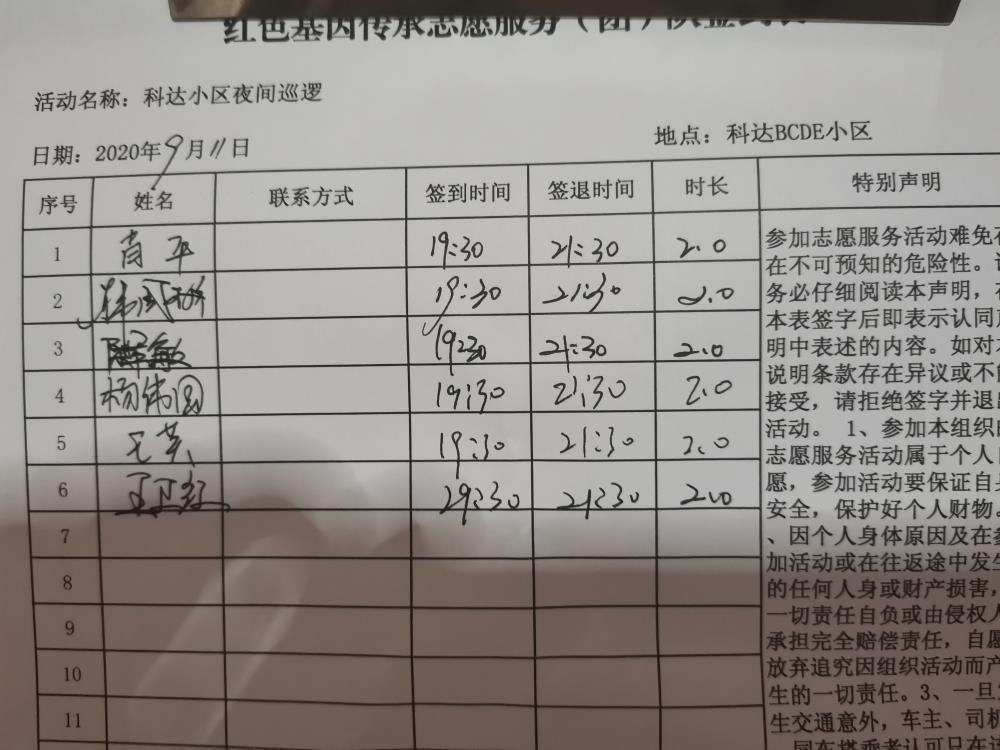 红色基因传承志愿服务（团）队签到表
活动名称：科达小区夜间巡逻
日期：2020年9月11日
地点：科达BCDE小区
序号 姓名 联系方式 签到时间 签退时间 时长 特别声明
1 肖平 19:30 21:30 2.0
2 19:30 21:30 2.0
3 敏 19:30 21:30 2.0
4 杨伟国 19:30 21:30 2.0
5 王英 19:30 21:30 2.0
6 王正红 29:30 21:30 2.0
7
8
9
10
11
参加志愿服务活动难免存
在不可预知的危险性。
务必仔细阅读本声明，
本表签字后即表示认同
明中表述的内容。如对
说明条款存在异议或不能
接受，请拒绝签字并退出
活动。 1、参加本组织的
志愿服务活动属于个人自
愿，参加活动要保证自身
安全，保护好个人财物。
、因个人身体原因及在参
加活动或在往返途中发生
的任何人身或财产损害，
一切责任自负或由侵权人
承担完全赔偿责任，自愿
放弃追究因组织活动而产
生的一切责任。3、一旦
生交通意外，车主、司机